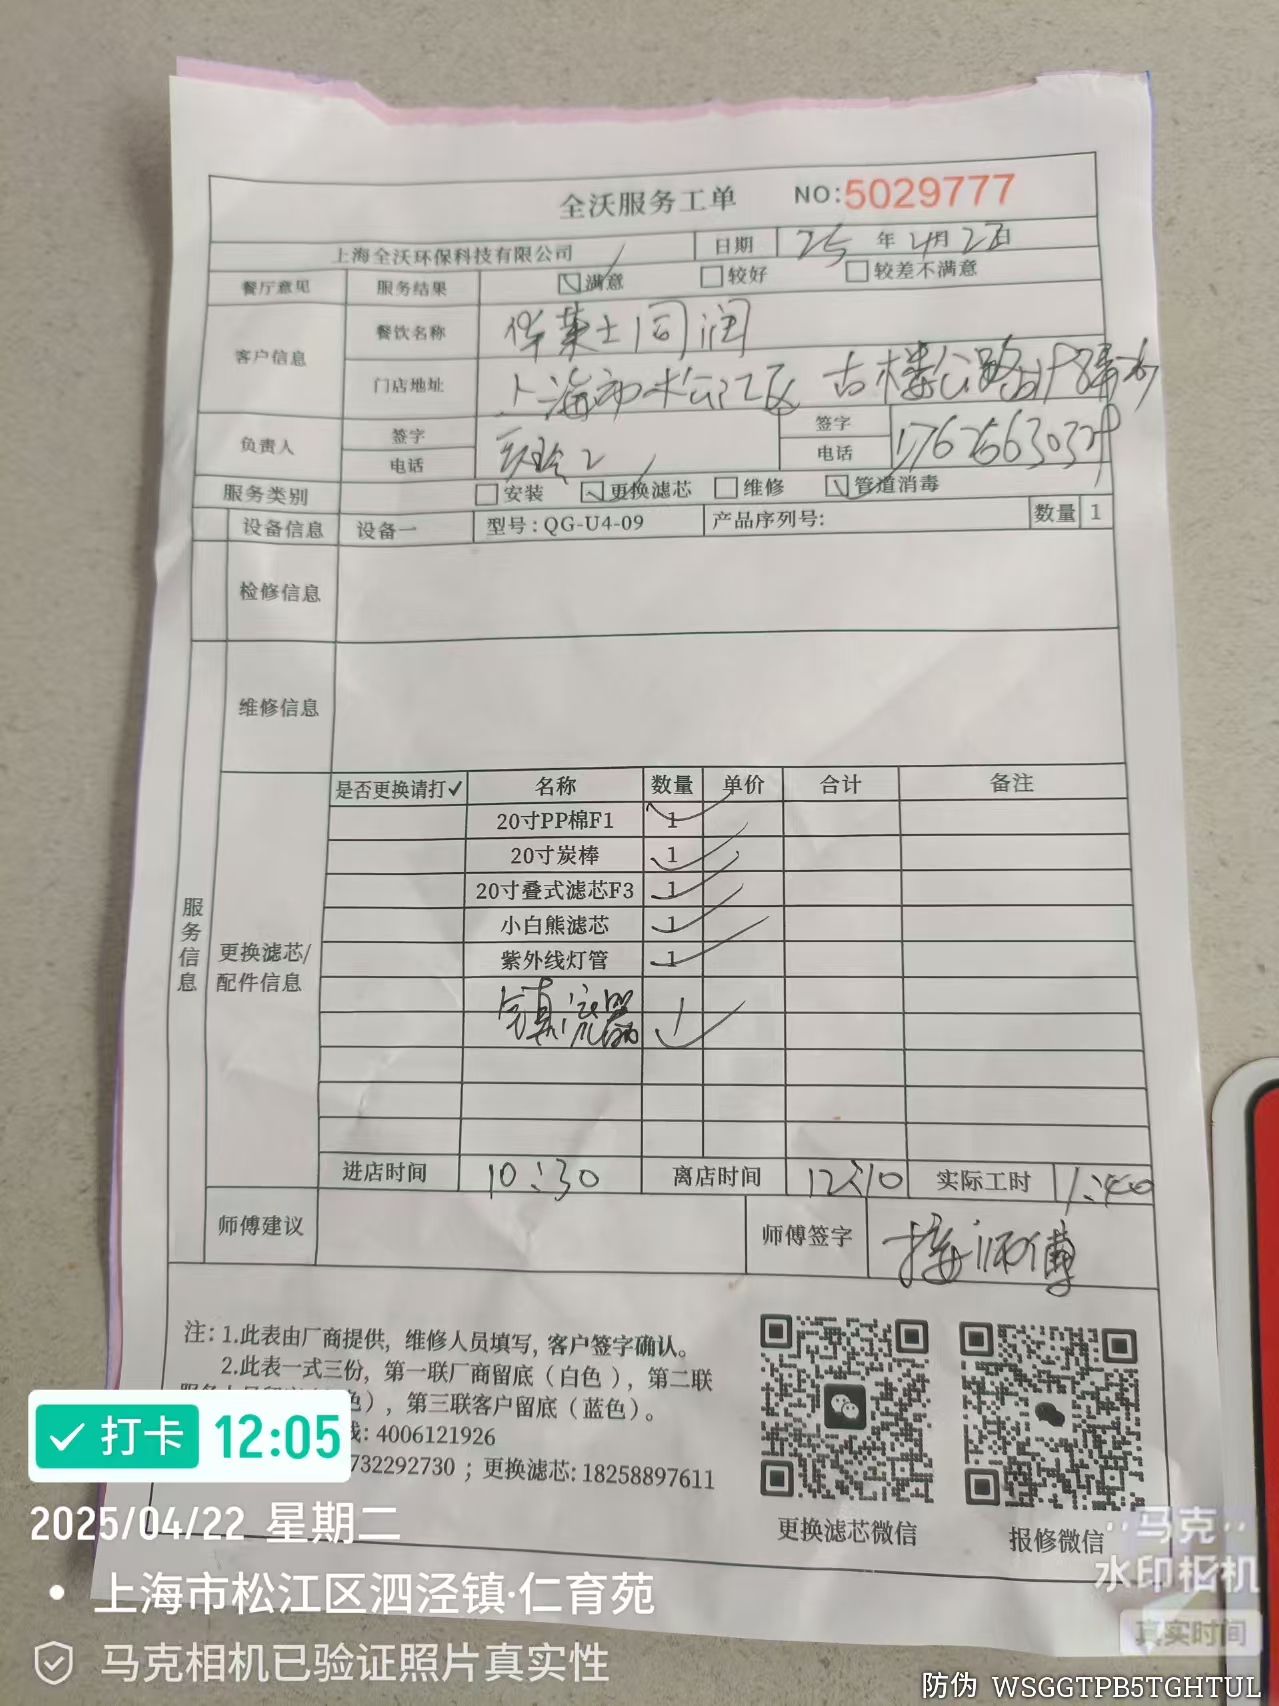 全沃服务工单 NO:5029777
上海全沃环保科技有限公司 日期 25年4月22日
餐厅意见 服务结果 满意 较好 较差不满意
客户信息 餐饮名称 华莱士同润
门店地址 上海市松江区古楼公路
负责人 签字 签字
电话 电话
服务类别 安装 更换滤芯 维修 管道消毒
设备信息 设备一 型号:QG-U4-09 产品序列号: 数量 1
检修信息
维修信息
服务信息
更换滤芯/
配件信息
是否更换请打✓ 名称 数量 单价 合计 备注
20寸PP棉F1 1
20寸炭棒 1
20寸叠式滤芯F3 1
小白熊滤芯 1
紫外线灯管 1
镇流器 1
进店时间 10:30 离店时间 12:10 实际工时 1:40
师傅建议 师傅签字 师傅
注: 1.此表由厂商提供, 维修人员填写, 客户签字确认。
2.此表一式三份, 第一联厂商留底(白色), 第二联
色), 第三联客户留底(蓝色)。
: 4006121926
732292730 ; 更换滤芯: 18258897611
更换滤芯微信 报修微信
打卡 12:05
2025/04/22 星期二
上海市松江区泗泾镇·仁育苑
马克相机已验证照片真实性
马克
水印相机
真实时间
防伪 WSGGTPB5TGHTUL